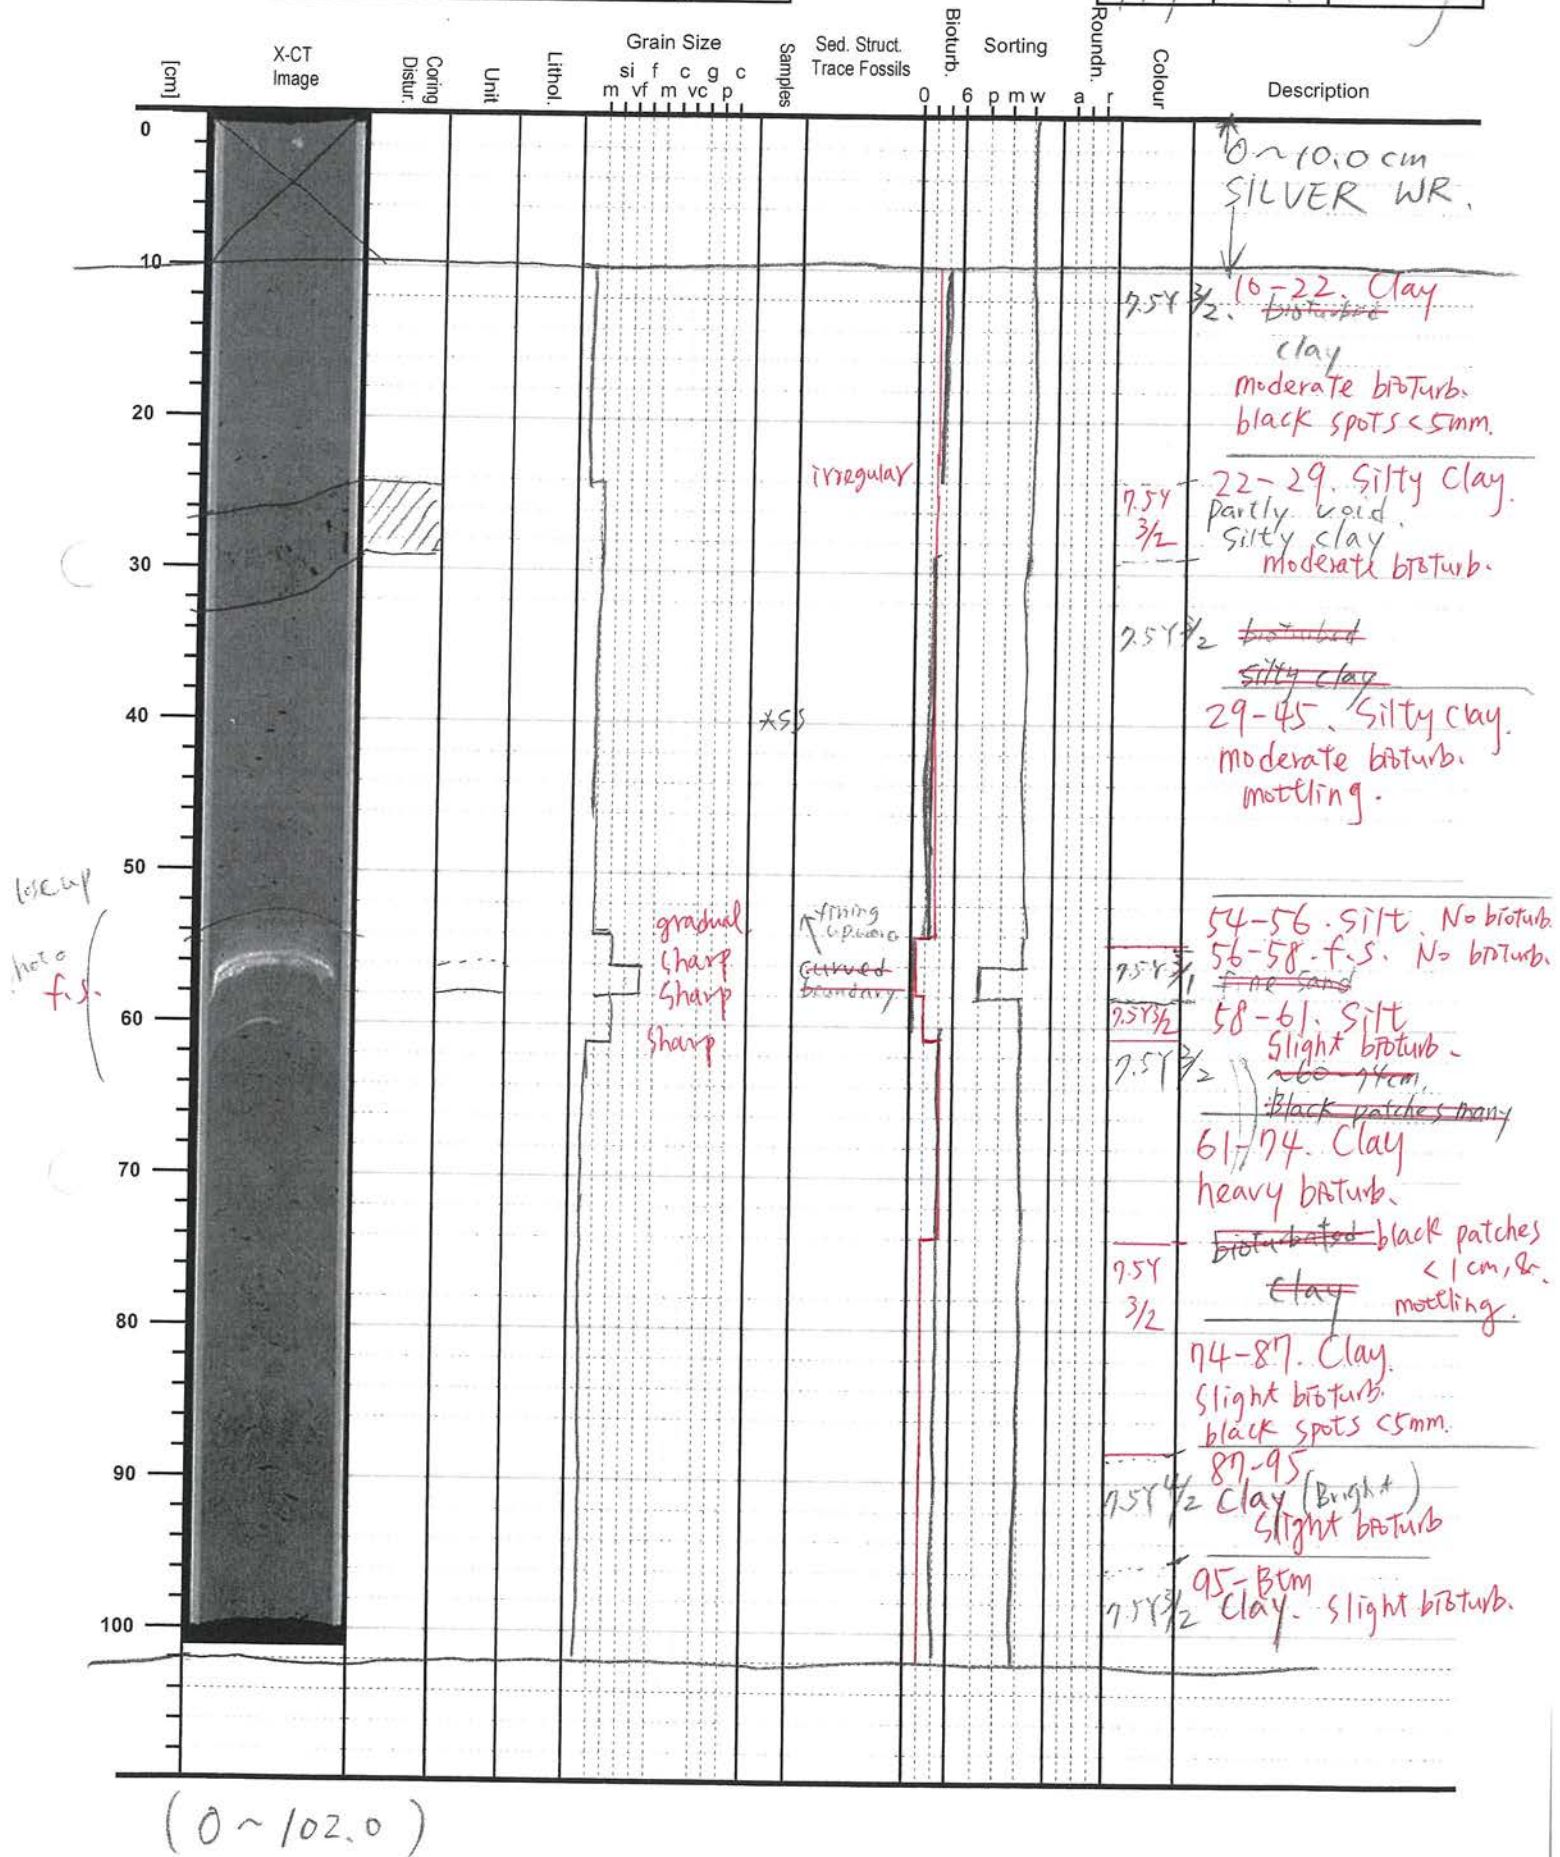 [cm]
X-CT
Image
Coring
Distur.
Unit
Lithol.
Grain Size
si f c g c
m vf m vc p
Samples
Sed. Struct.
Trace Fossils
Bioturb.
0 6
Sorting
p m w
Roundn.
a r
Colour
Description
0
10
20
30
40
50
60
70
80
90
100
0~10.0 cm
SILVER WR.
7.5Y 3/2.
10-22. Clay
bioturbed
clay
moderate bioturb.
black spots <5mm.
irregular
7.5Y
3/2
22-29. Silty Clay.
partly void.
Silty clay
moderate bioturb.
7.5Y 3/2
bioturbed
silty clay
*SS
29-45. Silty clay.
moderate bioturb.
mottling.
f.s.
gradual
sharp
sharp
sharp
fining
upward
curved
boundary
54-56. Silt. No bioturb.
56-58. f.s. No bioturb.
7.5Y 3/1
fine sand
7.5Y 3/2
58-61. Silt
Slight bioturb.
7.5Y 3/2
~60-74cm.
Black patches many
61-74. Clay
heavy bioturb.
bioturbated black patches
<1cm, &
Clay mottling.
7.5Y
3/2
74-87. Clay.
Slight bioturb.
black spots <5mm.
87-95
7.5Y 4/2
Clay (Bright)
Slight bioturb
95-Btm
7.5Y 3/2
Clay. Slight bioturb.
(0~102.0)